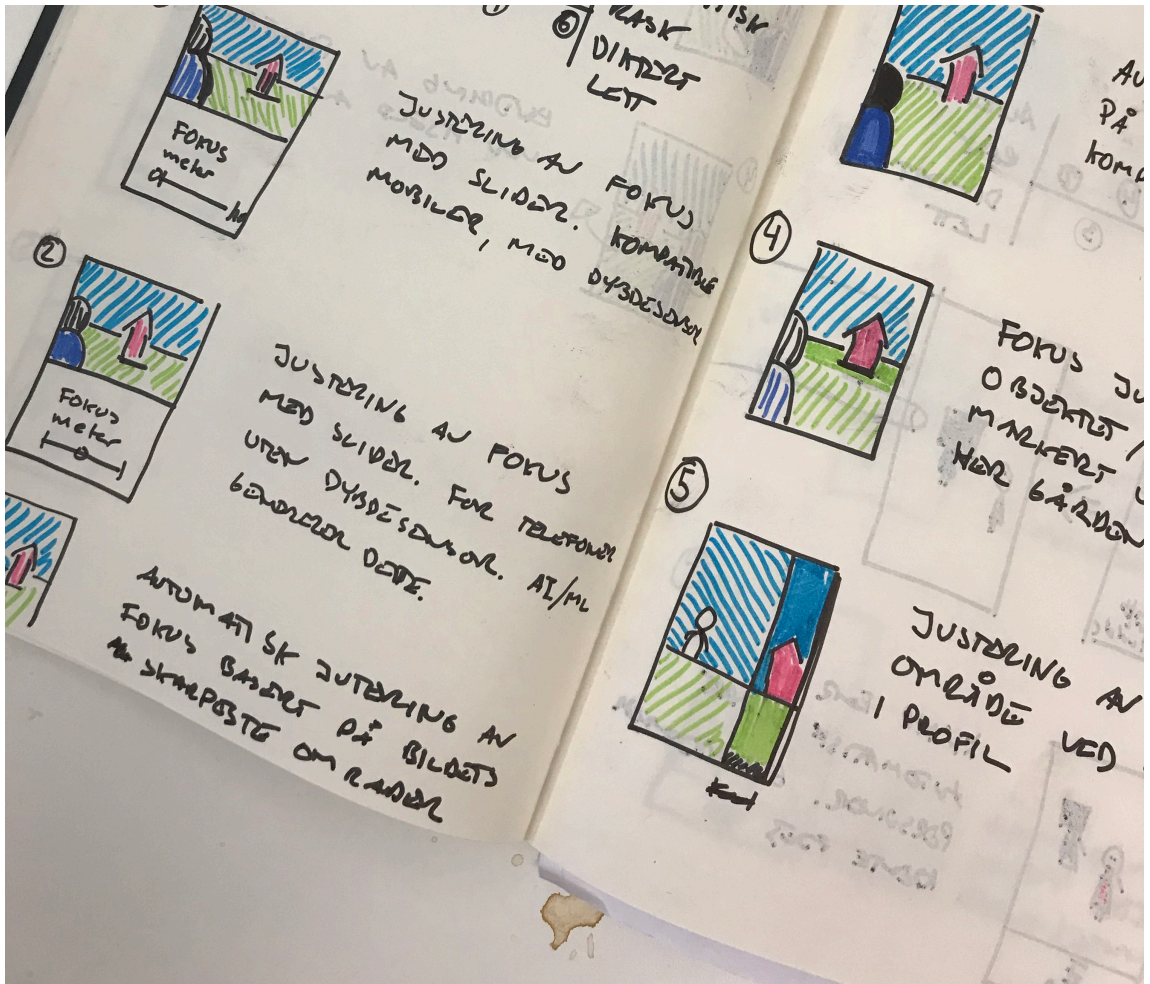 6
RASK
DIREKT
LETT
FOKUS
meter
JUSTERING AV FOKUS
MED SLIDER. KOMPATIBLE
MOBILER, MED DYBDESENSOR
2
FOKUS
meter
JUSTERING AV FOKUS
MED SLIDER. FOR TELEFONER
UTEN DYBDESENSOR. AI/ML
GENERERER DETTE.
AUTOMATISK JUTERING AV
FOKUS BASERT PÅ BILDETS
SKARPESTE OMRÅDER
AU
PÅ
KOMP
4
FOKUS JU
OBJEKTET /
MARKERT
HER GÅRDEN
5
JUSTERING AV
OMRÅDE VED
I PROFIL